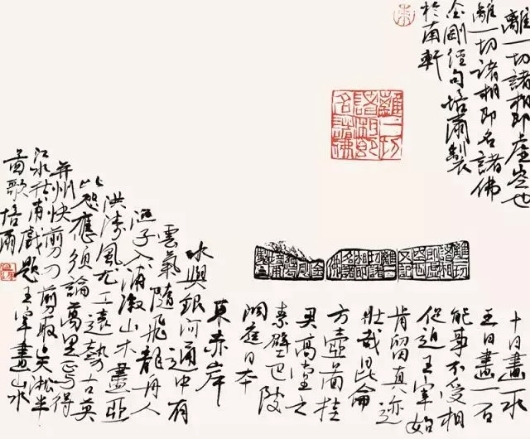 離一切諸相即虚空也
離一切諸相即名諸佛
金剛經句培爾製
於南軒
離一切
諸相即
名諸佛
十日畫一水
五日畫一石
能事不受相
促迫王宰始
肯留真迹
壯哉崑崙
方壺圖挂
君高堂之
素壁巴陵
洞庭日本
東赤岸
水與銀河通中有
雲氣隨飛龍舟人
漁子入浦溆山木盡亞
洪濤風尤工遠勢古莫
比咫尺應須論萬里焉得
并州快剪刀剪取吴淞半
江水杜甫戲題王宰畫山水
圖歌